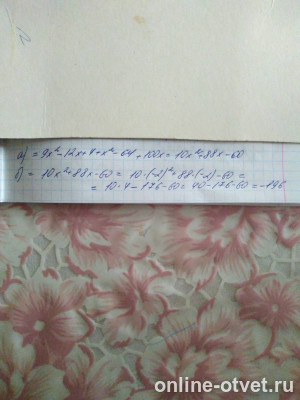 а) = 9x²-12x+4+x²-64+100x = 10x²+88x-60
б) = 10x²+88x-60 = 10·(-2)²+88·(-2)-60 =
= 10·4-176-60 = 40-176-60 = -196
online-otvet.ru